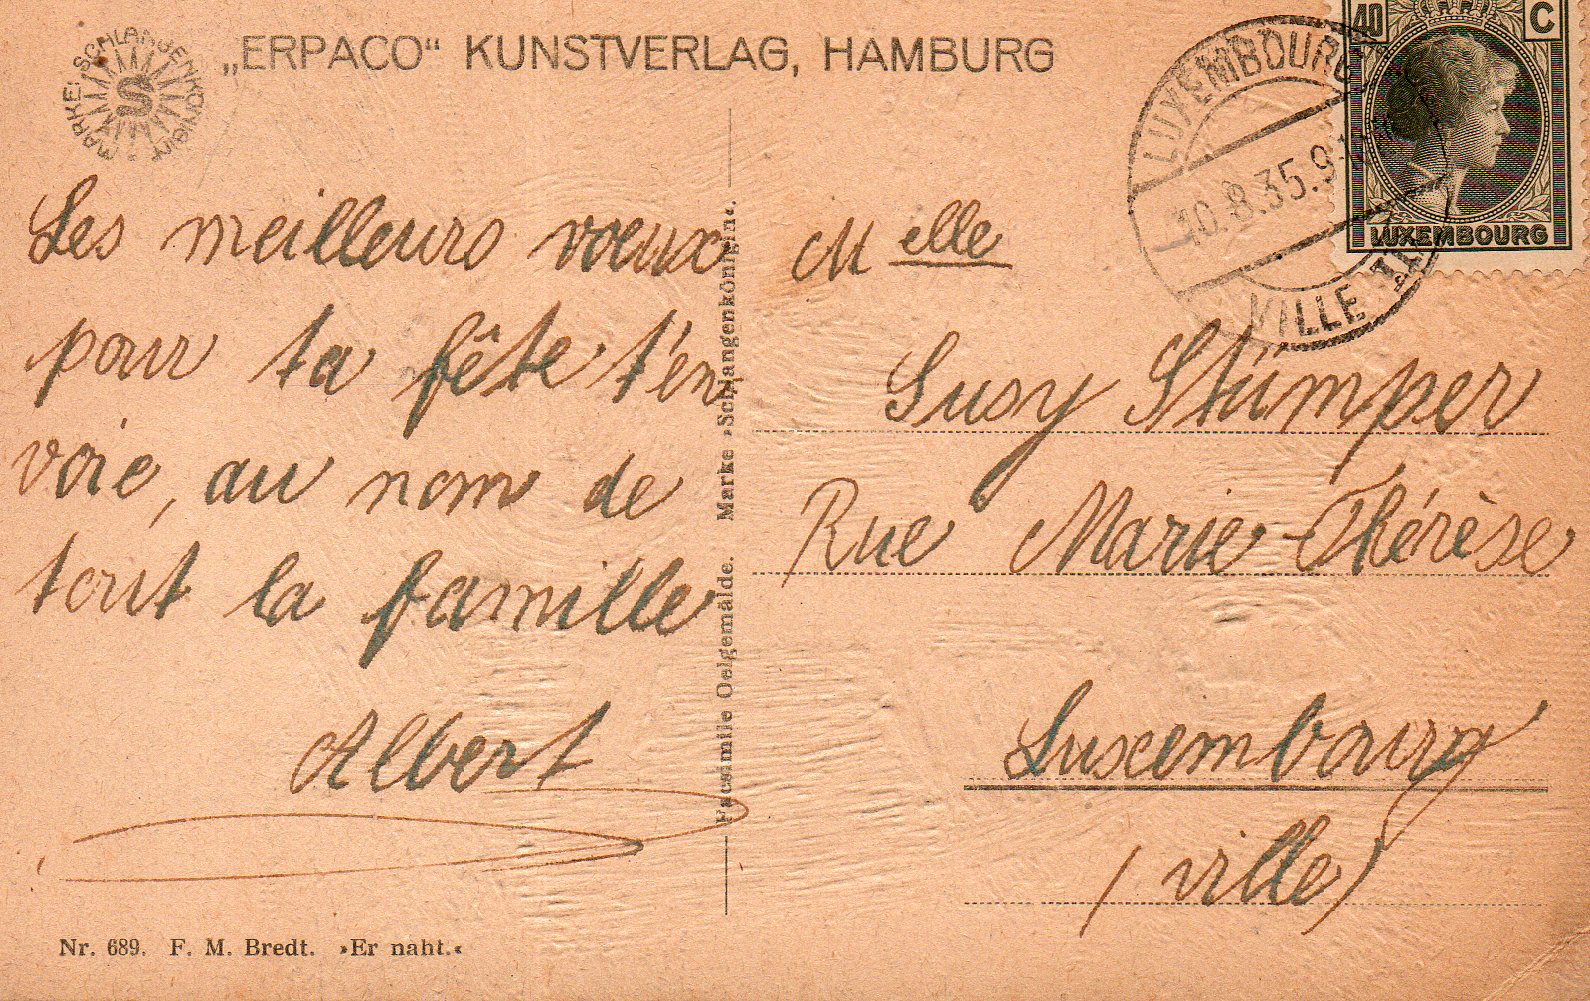 „ERPACO“ KUNSTVERLAG, HAMBURG
MARKE: SCHLANGENKÖNIGIN
S
Les meilleurs vœux
pour ta fête t'en
voie, au nom de
tout la famille
Albert
Nr. 689. F. M. Bredt. »Er naht.«
Facsimile Oelgemälde. Marke »Schlangenkönigin«.
40 C
LUXEMBOURG
LUXEMBOURG
10.8.35.9
VILLE
M elle
Susy Stümper
Rue Marie-Thérèse
Luxembourg
(ville)